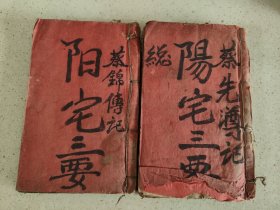 阳宅三要
蔡錦傳記
總
陽宅三要
蔡先溥記